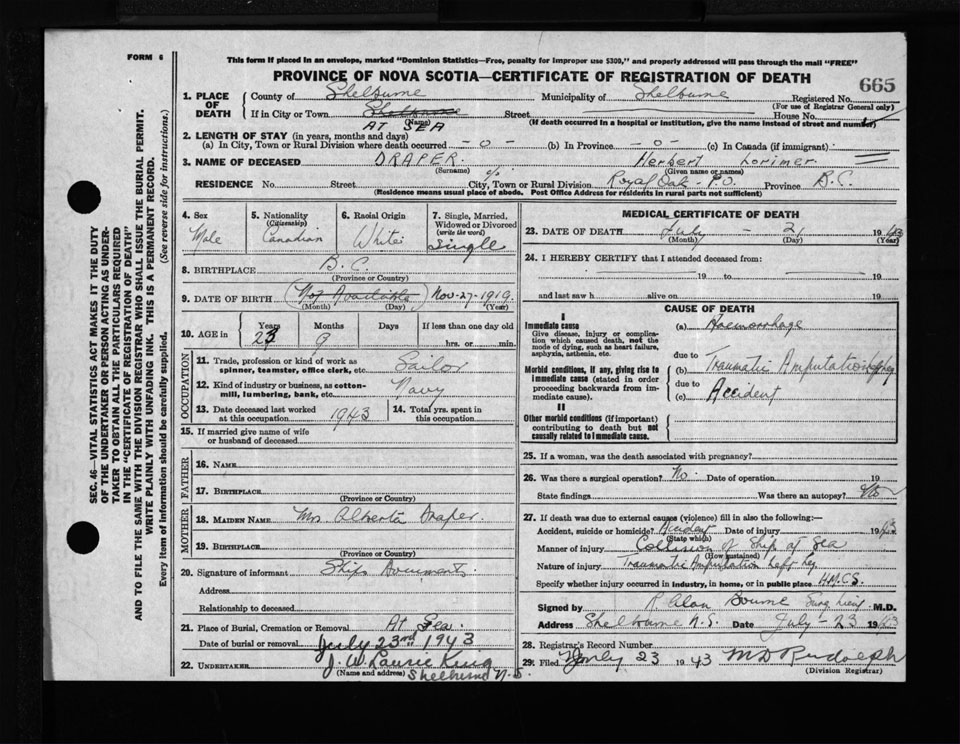 FORM 6
This form if placed in an envelope, marked "Dominion Statistics—Free, penalty for improper use $300," and properly addressed will pass through the mail "FREE"
PROVINCE OF NOVA SCOTIA—CERTIFICATE OF REGISTRATION OF DEATH
665
SEC. 46—VITAL STATISTICS ACT MAKES IT THE DUTY
OF THE UNDERTAKER OR PERSON ACTING AS UNDER-
TAKER TO OBTAIN ALL THE PARTICULARS REQUIRED
IN THE "CERTIFICATE OF REGISTRATION OF DEATH"
AND TO FILE THE SAME WITH THE DIVISION REGISTRAR WHO SHALL ISSUE THE BURIAL PERMIT.
WRITE PLAINLY WITH UNFADING INK. THIS IS A PERMANENT RECORD.
Every item of information should be carefully supplied. (See reverse side for instructions.)
1. PLACE OF DEATH
County of Shelburne Municipality of Shelburne Registered No.
(For use of Registrar General only)
If in City or Town Shelburne Street House No.
(Name) (If death occurred in a hospital or institution, give the name instead of street and number)
AT SEA
2. LENGTH OF STAY (in years, months and days)
(a) In City, Town or Rural Division where death occurred - 0 - (b) In Province - 0 - (c) In Canada (if immigrant)
3. NAME OF DECEASED DRAPER. Herbert Lorimer
(Surname) (Given name or names)
RESIDENCE No. Street c/o City, Town or Rural Division Royal Oak P.O. Province B.C.
(Residence means usual place of abode. Post Office Address for residents in rural parts not sufficient)
4. Sex
Male
5. Nationality
(Citizenship)
Canadian
6. Racial Origin
White
7. Single, Married,
Widowed or Divorced
(write the word)
Single
8. BIRTHPLACE B.C.
(Province or Country)
9. DATE OF BIRTH (Not Available) Nov-27-1919.
(Month) (Day) (Year)
10. AGE in
Years Months Days If less than one day old
23 9 hrs. or min.
OCCUPATION
11. Trade, profession or kind of work as
spinner, teamster, office clerk, etc. Sailor
12. Kind of industry or business, as cotton-
mill, lumbering, bank, etc. Navy
13. Date deceased last worked
at this occupation 1943
14. Total yrs. spent in
this occupation
15. If married give name of wife
or husband of deceased
FATHER
16. NAME
17. BIRTHPLACE
(Province or Country)
MOTHER
18. MAIDEN NAME Mrs Alberta Draper.
19. BIRTHPLACE
(Province or Country)
20. Signature of informant Ships Documents
Address
Relationship to deceased
21. Place of Burial, Cremation or Removal At Sea
Date of burial or removal July 23rd 1943
22. UNDERTAKER J. W. Laurie King
(Name and address) Shelburne N.S.
MEDICAL CERTIFICATE OF DEATH
23. DATE OF DEATH July - 21 1943
(Month) (Day) (Year)
24. I HEREBY CERTIFY that I attended deceased from:
19 to 19
and last saw h alive on 19
CAUSE OF DEATH
I
Immediate cause
Give disease, injury or complica-
tion which caused death, not the
mode of dying, such as heart failure,
asphyxia, asthenia, etc.
(a) Haemorrhage
due to
Morbid conditions, if any, giving rise to
immediate cause (stated in order
proceeding backwards from im-
mediate cause).
(b) Traumatic Amputation leg
due to
(c) Accident
II
Other morbid conditions (if important)
contributing to death but not
causally related to immediate cause.
25. If a woman, was the death associated with pregnancy?
26. Was there a surgical operation? No. Date of operation 19
State findings Was there an autopsy? No
27. If death was due to external causes (violence) fill in also the following:—
Accident, suicide or homicide? Accident Date of injury 1943
(State which)
Manner of injury Collision of Ships at Sea
(How sustained)
Nature of injury Traumatic Amputation Left leg
Specify whether injury occurred in industry, in home, or in public place H.M.C.S.
Signed by R. Alan Bourne Surg Lieut M.D.
Address Shelburne N.S. Date July - 23 1943
28. Registrar's Record Number
29. Filed July 23 1943 M D Rudolph
(Division Registrar)